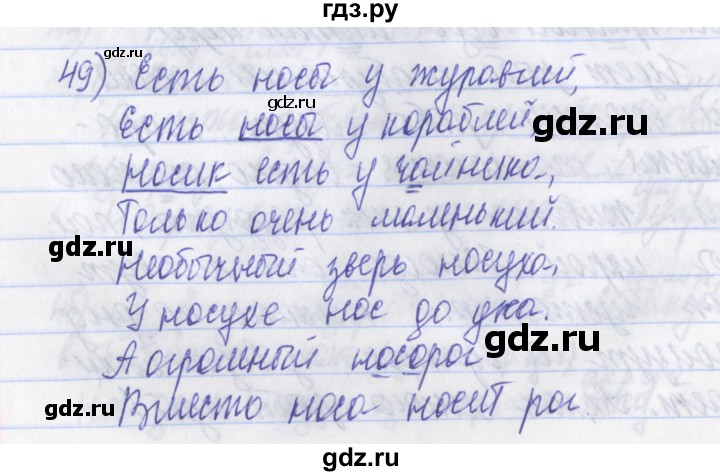 гдз.ру
gdz.ru
49) Есть носы у журавлий,
gdz.ru
Есть носы у кораблей,
gdz.ru
Носик есть у чайника,
gdz.ru
Только очень маленький.
gdz.ru
Необычный зверь носуха,
У носухе нос до уха.
gdz.ru
А огромный носорог
gdz.ru
Вместо носа носит рог.
gdz.ru